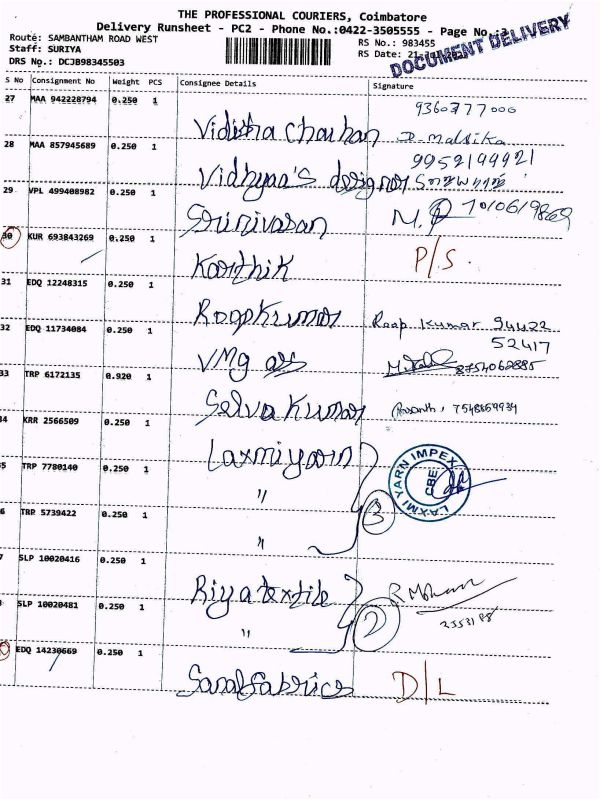 THE PROFESSIONAL COURIERS, Coimbatore
Delivery Runsheet - PC2 - Phone No.:0422-3505555 - Page No.
Route: SAMBANTHAM ROAD WEST
RS No.: 983455
Staff: SURIYA
RS Date: 21
DRS No.: DCJB98345503
DOCUMENT DELIVERY
S No Consignment No Weight PCS Consignee Details Signature
27 MAA 942228794 0.250 1
9360777000
Vidisha Chauhan
28 MAA 857945689 0.250 1
D. Malsika
9952199921
Vidhyaa's designer
29 VPL 499408982 0.250 1
Srinivasan
30 KUR 693843269 0.250 1
P/S.
Karthik
31 EDQ 12248315 0.250 1
RoopKumar
Roop Kumar 94422
52417
32 EDQ 11734084 0.250 1
VMG
8754062885
33 TRP 6172135 0.920 1
Selva Kumar
34 KRR 2566509 0.250 1
Laxmiyarn
LAXMI YARN IMPEX
CBE
5 TRP 7780140 0.250 1
"
3
6 TRP 5739422 0.250 1
"
7 SLP 10020416 0.250 1
Riya textile
R Mohan
SLP 10020481 0.250 1
"
2
EDQ 14230669 0.250 1
D/L